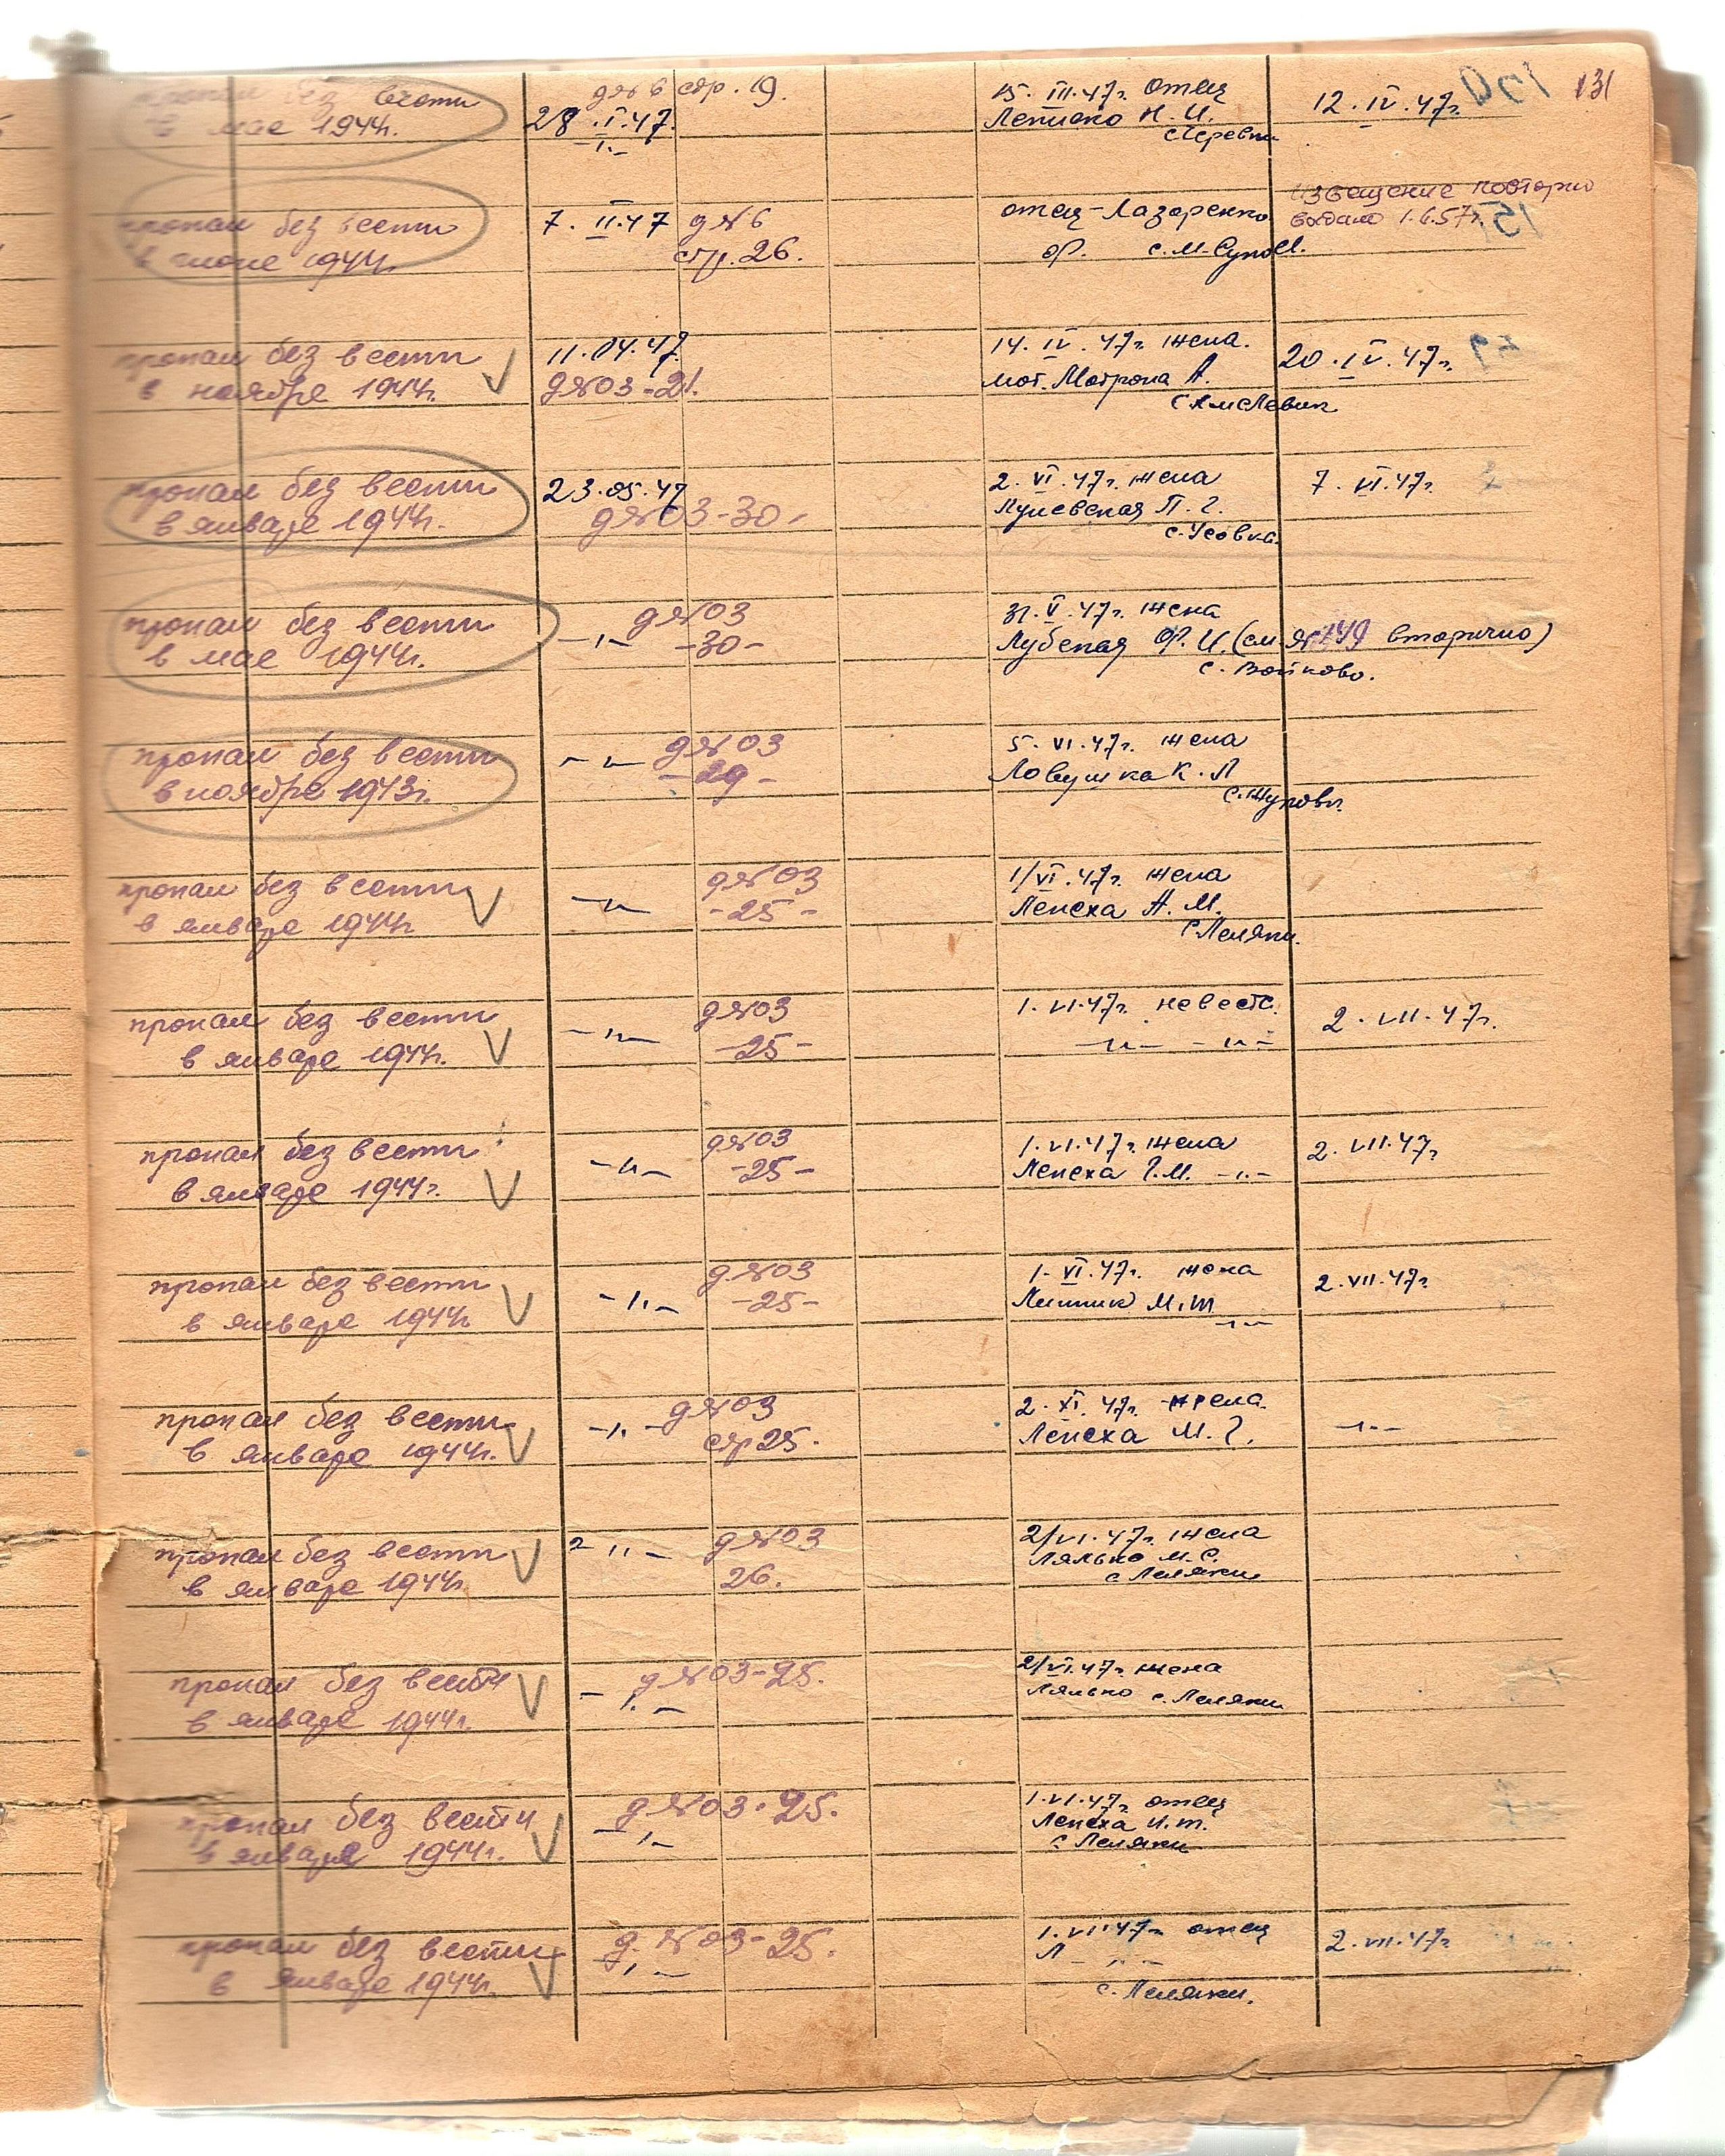 131
пропал без вести
в мае 1944г.
д№6 стр. 19.
28.I.47.
15.III.47г. отец
Лепшко Н. И.
12.IV.47г.
пропал без вести
в июне 1944г.
7.II.47 д№6
стр. 26.
отец - Лазаренко
Ф. с. М-Супой.
извещение повторно
выдано 1.6.57г.
пропал без вести
в ноябре 1944г. V
11.04.47
д№03-21.
14.IV.47г. жена.
Мот. Мотрона А.
20.IV.47г.
пропал без вести
в январе 1944г.
23.05.47
д№03-30-
2.VI.47г. жена
П. Г.
с. Усовка.
7.VI.47г.
пропал без вести
в мае 1944г.
-"- д№03
-30-
31.V.47г. жена
Лубская Ф. И. (см №149 вторично)
с. Войково.
пропал без вести
в ноябре 1943г.
-"- д№03
-29-
5.VI.47г. жена
Ловушка К. Л
пропал без вести V
в январе 1944г
-"- д№03
-25-
1/VI.47г. жена
Лепеха А. М.
с. Леляки.
пропал без вести
в январе 1944г. V
-"- д№03
-25-
1.VI.47г. невестк.
-"- -"-
2.VII.47г.
пропал без вести
в январе 1944г. V
-"- д№03
-25-
1.VI.47г. жена
Лепеха Г.М. -"-
2.VII.47г
пропал без вести
в январе 1944г V
-"- д.№03
-25-
1.VI.47г. жена
Линник М.Т
-"-
2.VII.47г
пропал без вести
в январе 1944г. V
-"- д№03
стр 25.
2.XI.47г. жена.
Лепеха М. Г.
-"-
пропал без вести V
в январе 1944г.
-"- д№03
26.
2/VI.47г. жена
Лялько М. С.
с Леляки
пропал без вести V
в январе 1944г.
-"- д№03-25.
2/VI.47г. жена
Лялько с. Леляки
пропал без вести
в январе 1944г. V
-"- д№03-25.
1.VI.47г. отец
Лепеха И.Т.
с Леляки
пропал без вести
в январе 1944г. V
-"- д.№03-25.
1.VII.47г отец
Л -"-
с. Леляки.
2.VII.47г